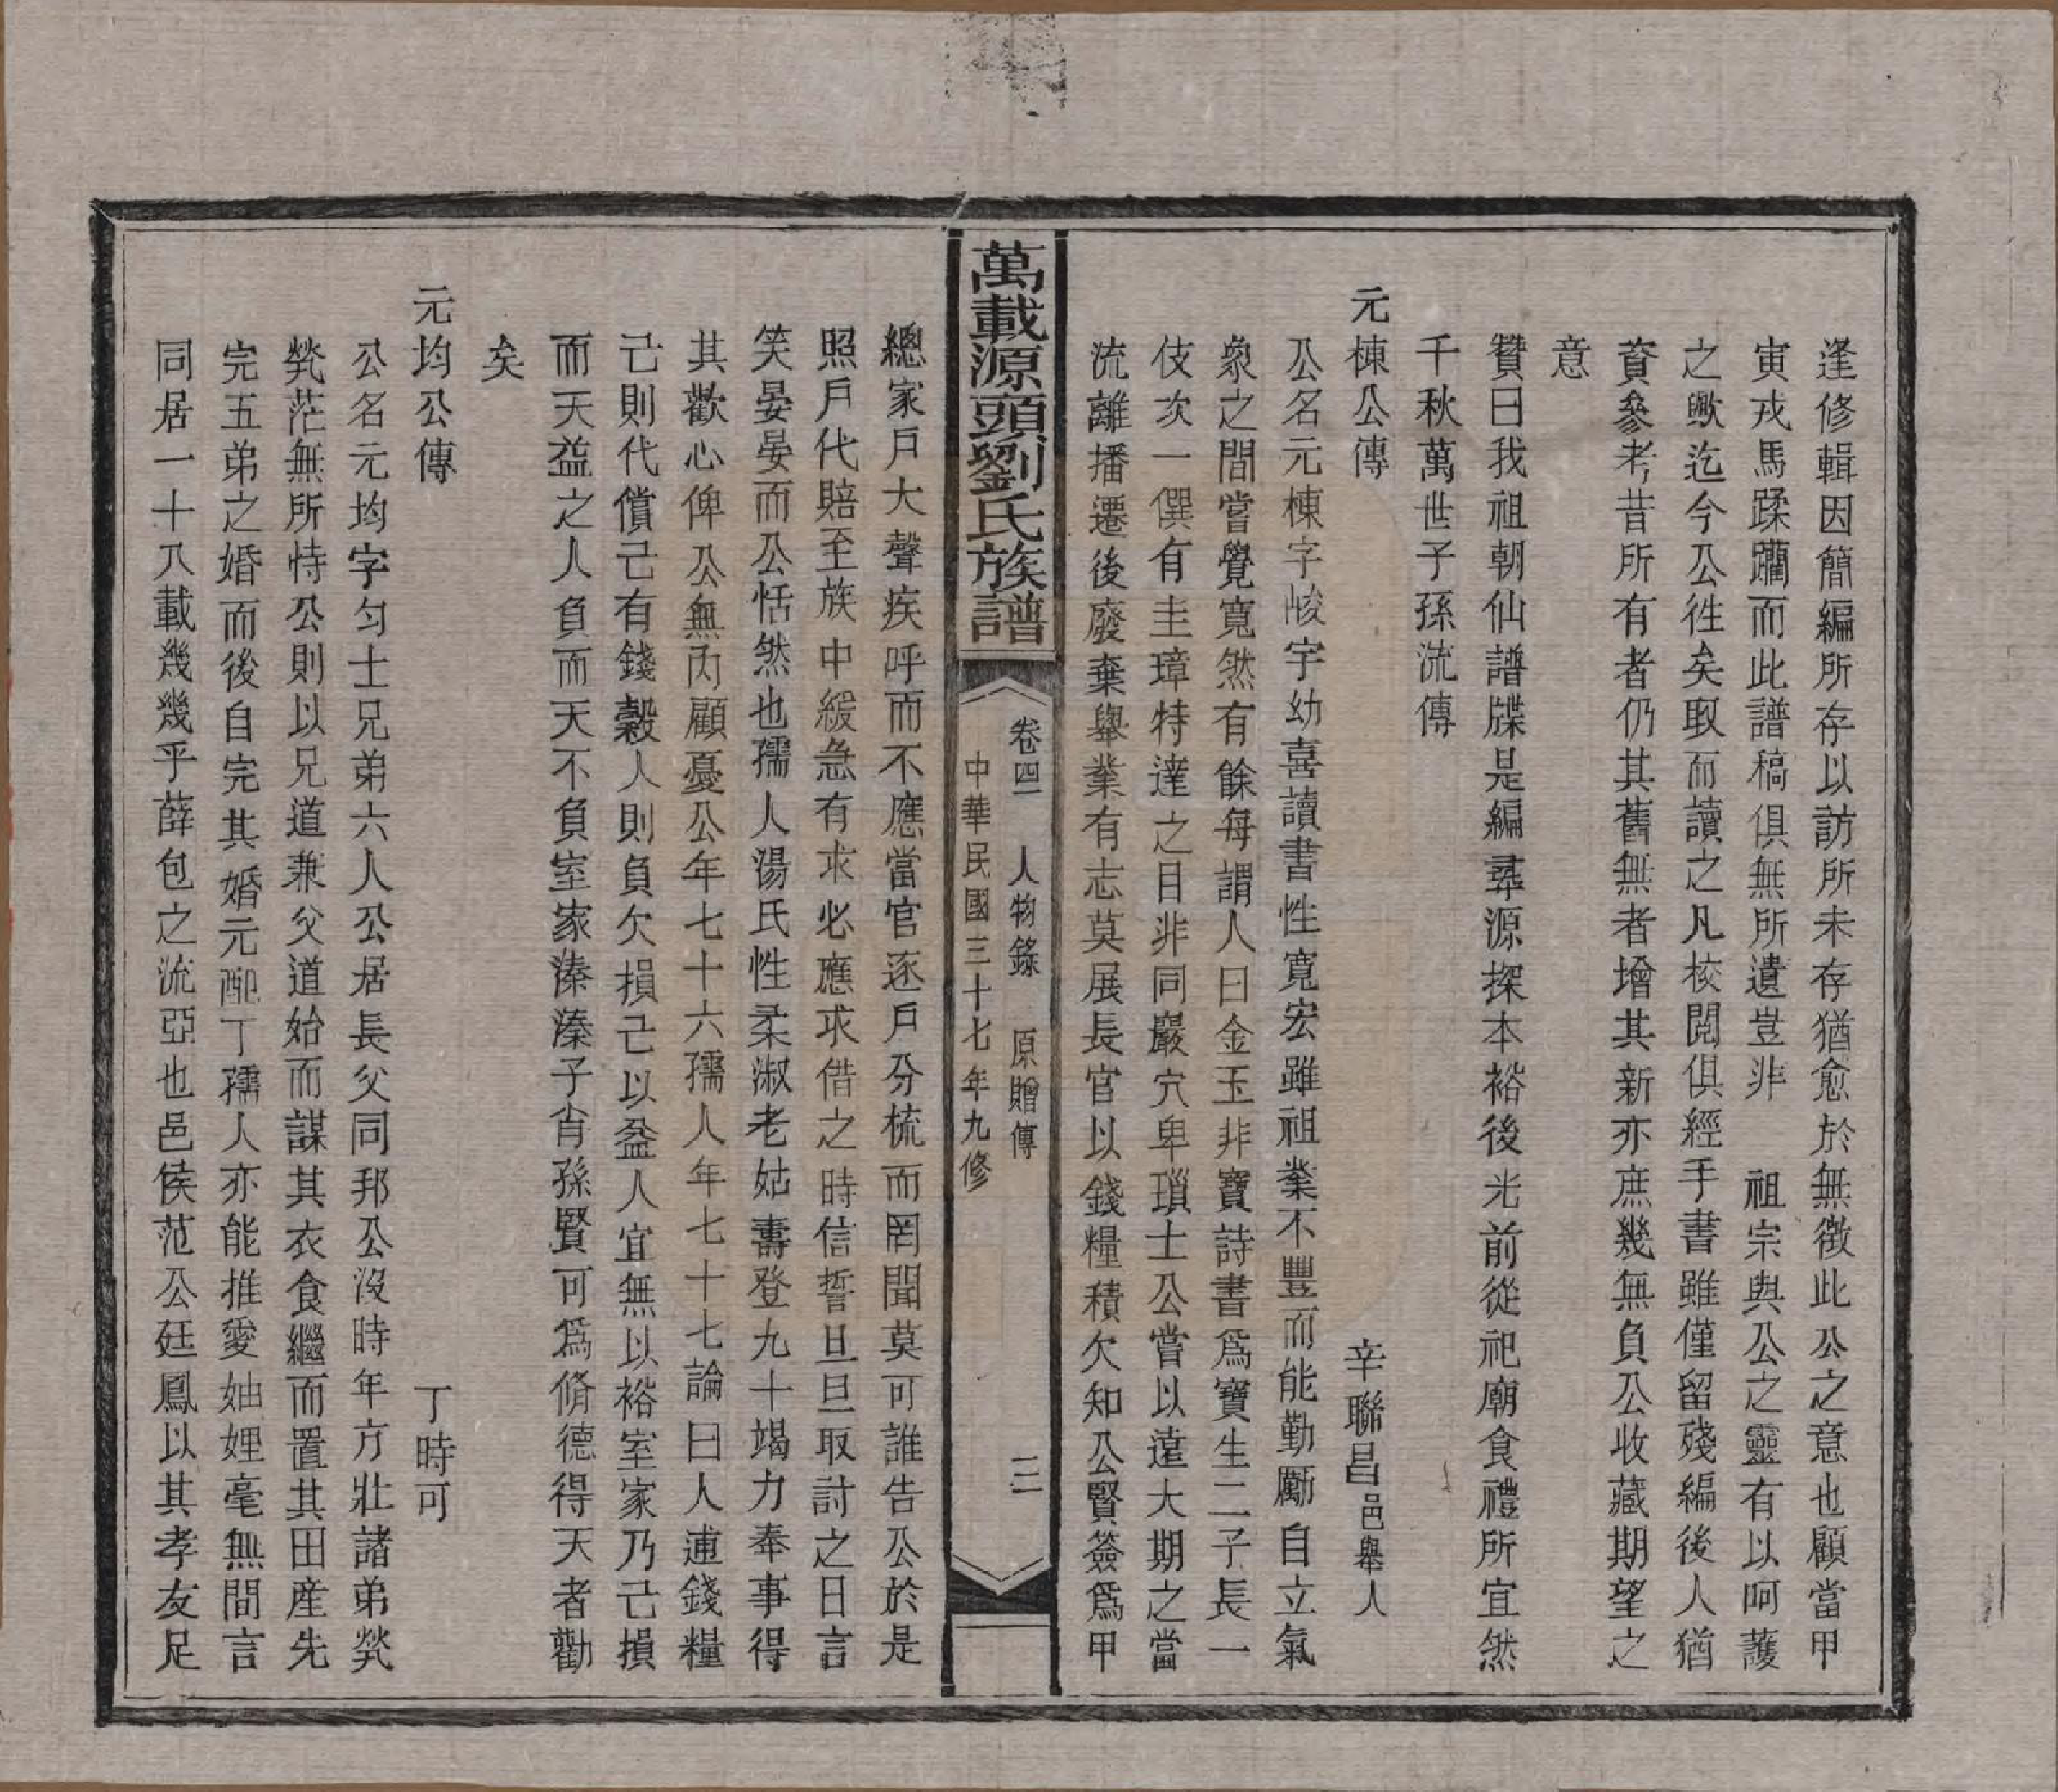 逢修輯因簡編所存以訪所未存猶愈於無徵此公之意也顧當甲
寅戎馬蹂躪而此譜稿俱無所遺豈非　祖宗與公之靈有以呵護
之歟迄今公徃矣取而讀之凡校閱俱經手書雖僅留殘編後人猶
資參考昔所有者仍其舊無者增其新亦庶幾無負公收藏期望之
意
贊曰我祖朝仙譜牒是編尋源探本裕後光前從祀廟食禮所宜然
千秋萬世子孫流傳
元棟公傳　辛聯昌邑舉人
公名元棟字峻宇幼喜讀書性寬宏雖祖業不豐而能勤勵自立氣
象之間嘗覺寬然有餘每謂人曰金玉非寶詩書爲寶生二子長一
伎次一僎有圭璋特達之目非同巖穴卑瑣士公嘗以遠大期之當
流離播遷後廢棄舉業有志莫展長官以錢糧積欠知公賢簽爲甲
萬載源頭劉氏族譜
卷四　人物錄　原贈傳　二
中華民國三十七年九修
總家戶大聲疾呼而不應當官逐戶分梳而罔聞莫可誰告公於是
照戶代賠至族中緩急有求必應求借之時信誓旦旦取討之日言
笑晏晏而公恬然也孺人湯氏性柔淑老姑壽登九十竭力奉事得
其歡心俾公無內顧憂公年七十六孺人年七十七論曰人逋錢糧
己則代償己有錢穀人則負欠損己以益人宜無以裕室家乃己損
而天益之人負而天不負室家溱溱子肖孫賢可爲脩德得天者勸
矣
元均公傳　丁時可
公名元均字勻士兄弟六人公居長父同邦公沒時年方壯諸弟煢
煢茫無所恃公則以兄道兼父道始而謀其衣食繼而置其田産先
完五弟之婚而後自完其婚元配丁孺人亦能推愛妯娌毫無間言
同居一十八載幾幾乎薛包之流亞也邑侯范公廷鳳以其孝友足